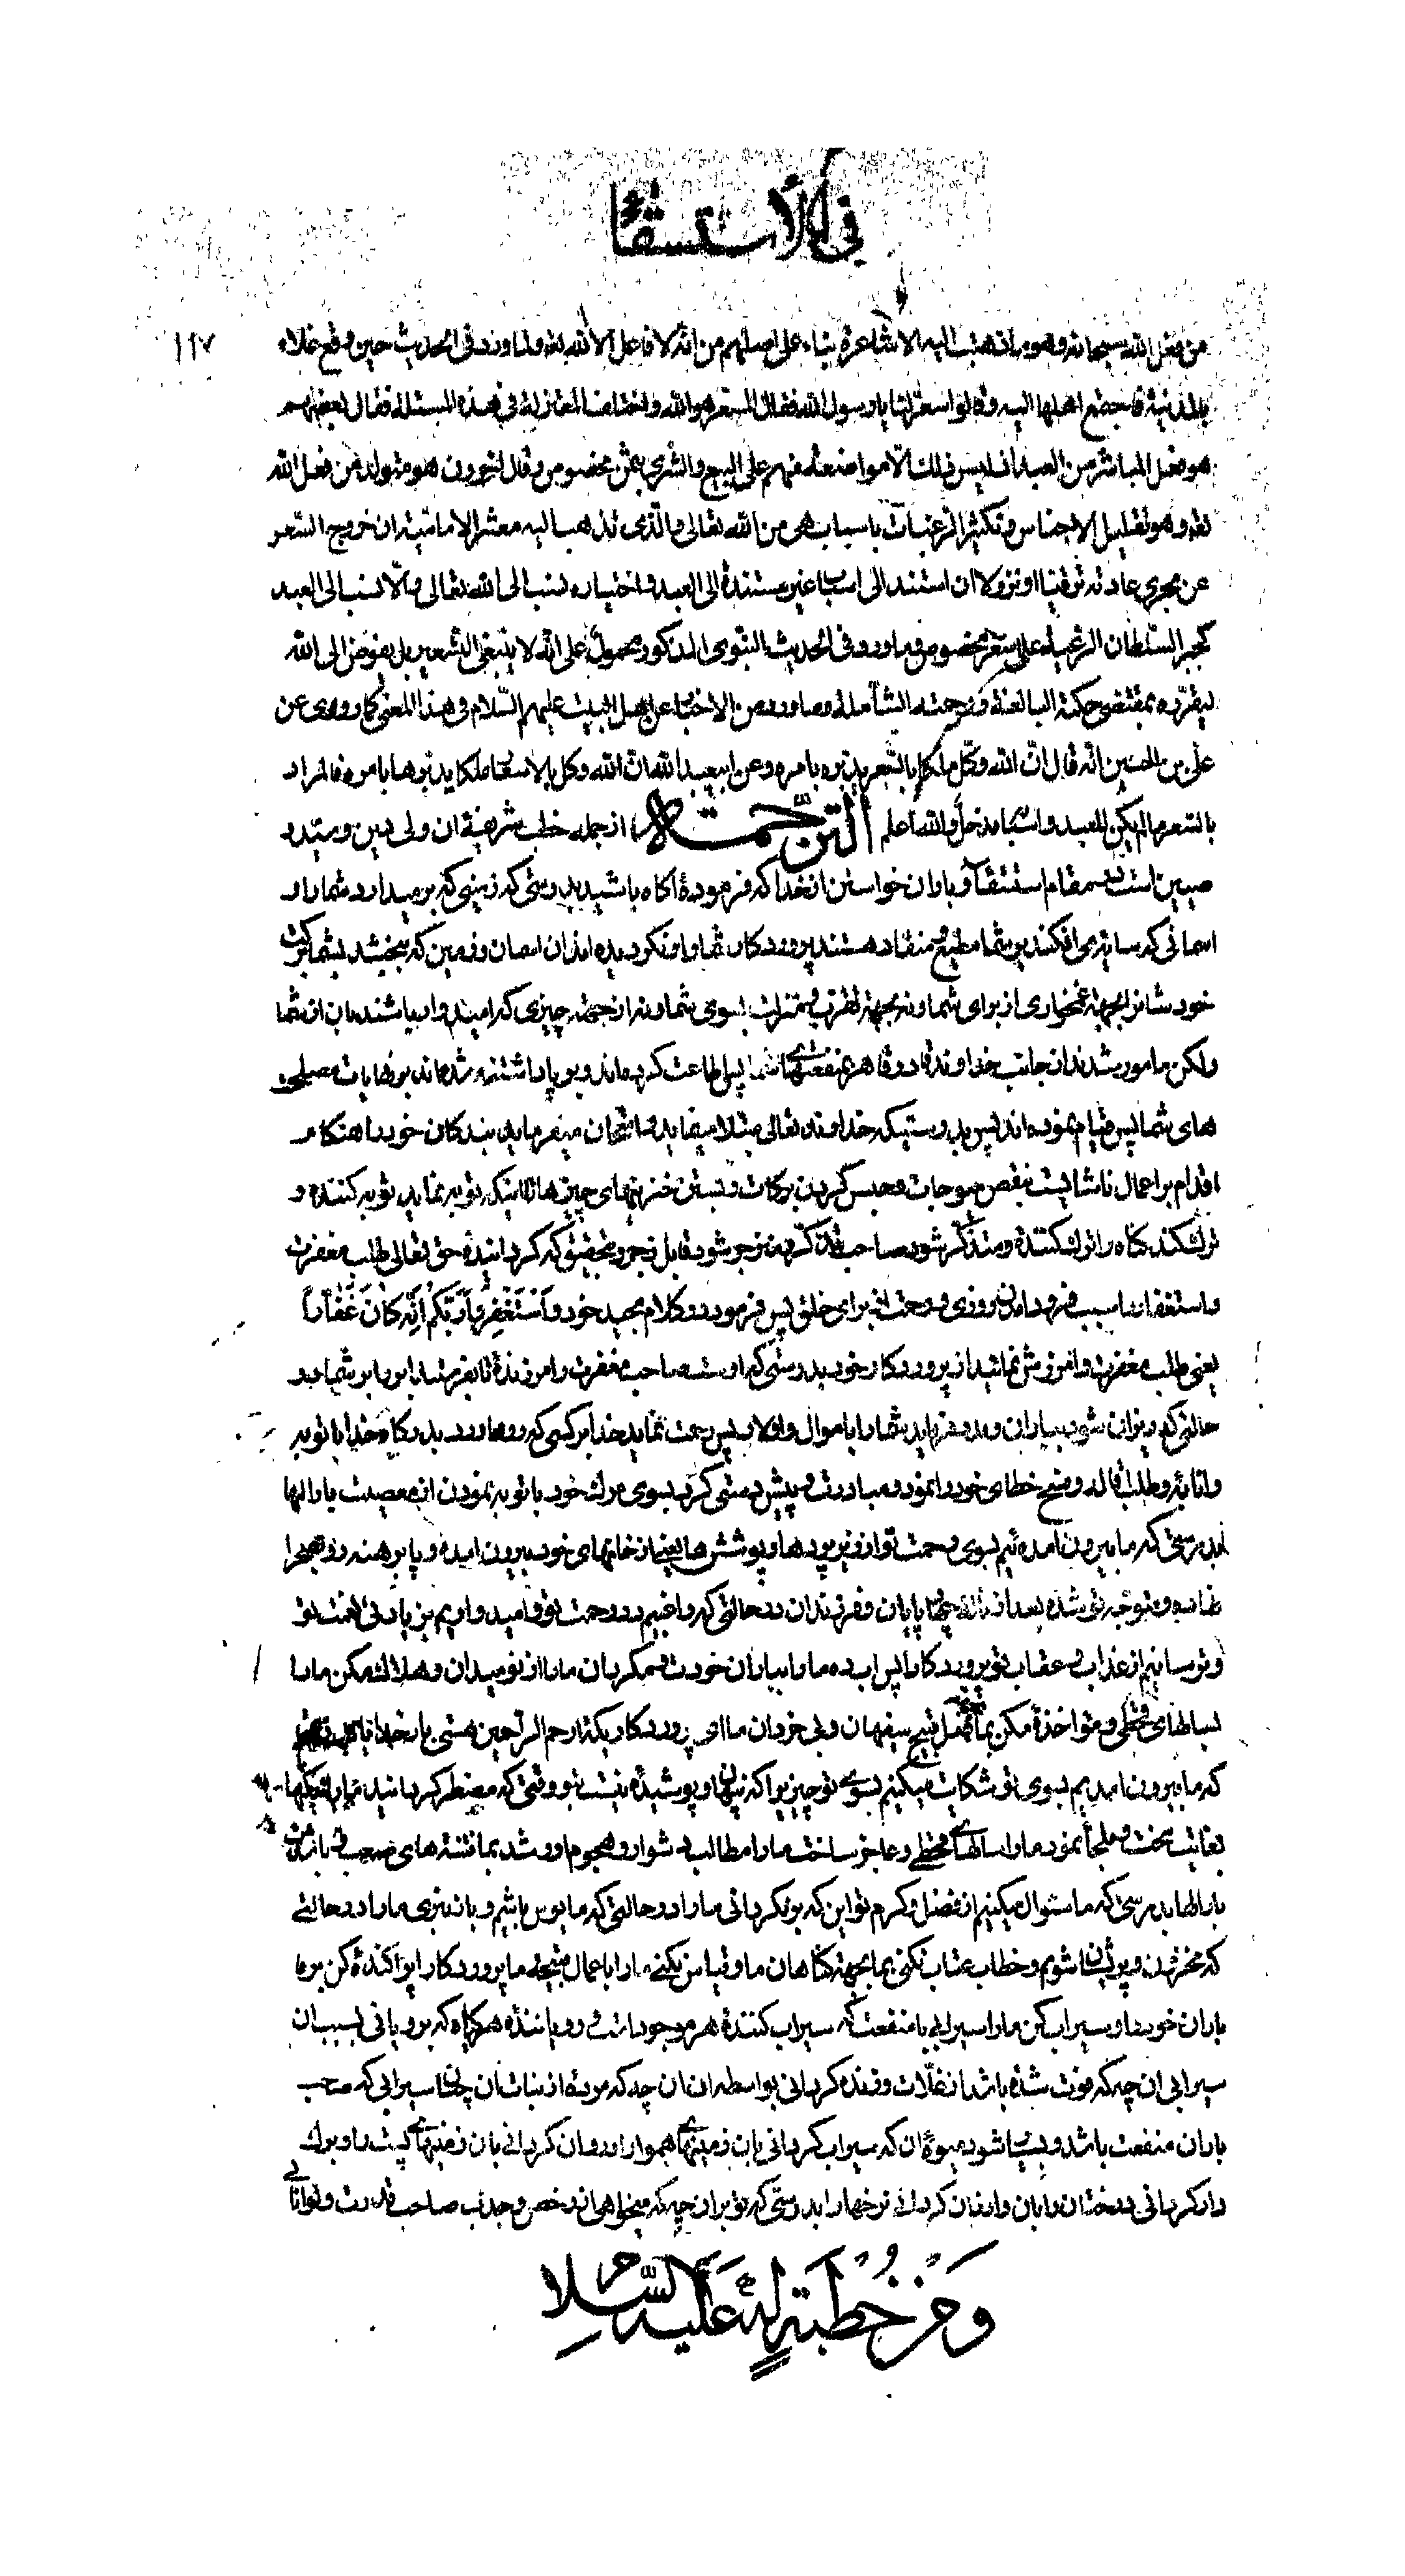 فی الاستسقاء
۱۱۷
من فعل الله سبحانه وهو ما ذهبت الیه الاشاعرة بناء علی اصلهم من انّه لا فاعل الا الله تعه ولما ورد فی الحدیث حین وقع غلاء
بالمدینة فاجتمع اهلها الیه وقالوا سعّر لنا یا رسول الله فقال المسعر هو الله واختلف المعتزلة فی هذه المسئلة فقال بعضهم
هو فعل المباشر من العبد اذ لیس ذلک الّا مواضعة منهم علی البیع والشری بثمن مخصوص وقال اخرون هو متولد من فعل الله
تعه وهو تقلیل الاجناس وتکثیر الرغبات باسباب هی من الله تعالی والّذی ذهب الیه معشر الامامیّة ان خروج السّعر
عن مجری عادته ترقیا او نزولا ان استند الی اسباب غیر مستندة الی العبد واختیاره نسب الی الله تعالی والّا نسب الی العبد
کجبر السّلطان الرعیة علی سعر مخصوص وما ورد فی الحدیث النّبوی المذکور محمول علی انّه لا ینبغی التسعیر بل یفوض الی الله
لیقرّره بمقتضی حکمة البالغة و رحمته الشّاملة وما ورد من الاخبار عن اهل البیت علیهم السّلام فی هذا المعنی کما روی عن
علی بن الحسین انّه قال انّ الله وکّل ملکا بالسّعر یدبّره بامره وعن ابیعبد الله ان الله وکل بالاسعار ملکا یدبّرها بامره فالمراد
بالسّعر ما لم یکن للعبد واسبابه مدخل والله اعلم التّرجمة از جمله خطب شریفهٔ ان ولی دین و سیّد و
مبین است در مقام استسقاء و باران خواستن از خدا که فرموده آگاه باشید بدرستی که زمینی که بر میدارد شما را و
اسمانی که سایه می افکند بر شما مطیع و منقاد هستند پروردکار شما را و نکردیده اند ان اسمان و زمین که ببخشد بشما برکت
خودشانرا بجهة غمخواری از برای شما و نه بجهة تقرب و منزلت بسوی شما و نه از جهة چیزی که امیدوار باشند بان از شما
ولکن مامور شدند از جانب خداوند قادر قاهر بمنفعتهای شما پس اطاعت کرده‌اند و برپا داشته شده‌اند بر نهایات مصلحت
های شما پس قیام نموده‌اند پس بدرستیکه خداوند تعالی مبتلا مینماید و امتحان میفرماید بندکان خود را هنکام
اقدام بر اعمال ناشایست بنقص میوجات و حبس کردن برکات و بستن خزینهای چیزها تا اینکه توبه نماید توبه کننده و
ترک کند کناه را ترک کننده و متذکّر شود صاحب تذکّر و منزجر شود قابل زجر و بتحقیق که کردانیده حق تعالی طلب مغفرت
و استغفار را سبب فرود امدن روزی و رحمت از برای خلق پس فرمود در کلام مجید خود وَاسْتَغْفِرُوا رَبَّکُمْ اِنَّه کَانَ غَفَّاراً
یعنی طلب مغفرت و امرزش نمائید از پروردکار خود بدرستی که اوست صاحب مغفرت و امرزنده تا بفرستد ابر را بر شما در
حالتی که ریزان شود بباران و مدد فرماید شما را باموال و اولاد پس رحمت نماید خدا بر کسی که رو اورد بدرکاه خدا با توبه
و انابه و طلب اقاله و فسخ خطای خود را نمود و مبادرت و پیش دستی کرد بسوی مرک خود با توبه نمودن از معصیت بار الها
بدرستی که ما بیرون امده‌ئیم بسوی رحمت تو از زیر پردها و پوشش‌ها یعنی از خانهای خود بیرون امده و پا برهنه رو بصحرا
نهاده و متوجه تو شده بعد از ناله چهارپایان و فرزندان در حالتی که راغبیم در رحمت تو و امیدواریم بزیادتی نعمت تو
و ترسانیم از عذاب و عقاب تو پروردکارا پس اب ده ما را بباران خودت و مکردان ما را از نومیدان و هلاک مکن ما را
بسالهای قحطی و مؤاخذه مکن بما بفعل قبیح سفیهان و بی خردان ما ای پروردکاریکه ارحم الراحمین هستی بار خدایا بدرستی
که ما بیرون امدیم بسوی تو شکایت میکنیم بسوی تو چیزیرا که پنهان و پوشیده نیست بتو وقتی که مضطر کردانید ما را تنکیها
بغایت سخت و ملجأ نمود ما را سالهای قحطی و عاجز ساخت ما را مطالب دشوار و هجوم اورد بما فتنه‌های صعب
بار الها بدرستی که ما سئوال میکنیم از فضل و کرم تو این که برنکردانی ما را در حالتی که مایوس باشیم و باز نبری ما را در حالتی
که محزون و پریشان باشیم و خطاب عتاب نکنی بما بجهة کناهان ما و قیاس نکنی ما را باعمال قبیحه ما پروردکارا پراکنده کن بر ما
باران خود را و سیراب کن ما را سیرابی با منفعت که سیراب کنندهٔ هر موجود است و رویاننده هر کیاه که برویانی بسبب ان
سیرابی ان چه که فوت شده باشد از غلّات و زنده کردانی بواسطه ان ان چه که مرده از نباتات ان چنان سیرابی که صاحب
باران منفعت باشد و بسیار شود میوهٔ ان که سیراب کردانی بان زمینهای هموار را و روان کردانی بان زمینهای پست را و برک
دار کردانی درختان را بان و ارزان کردانی نرخها را بدرستی که تو بر ان چه که میخواهی از رخص و جدب صاحب قدرت و توانائی
وَمِنْ خُطْبَةٍ لَهُ عَلَیْهِ السَّلام